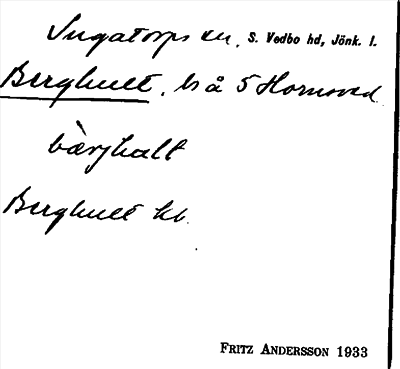 Ingatorps sn. S. Vedbo hd, Jönk. l.
Berghult, ls å 5 Hornsved
bàrjhalt
Berghult kb.
FRITZ ANDERSSON 1933